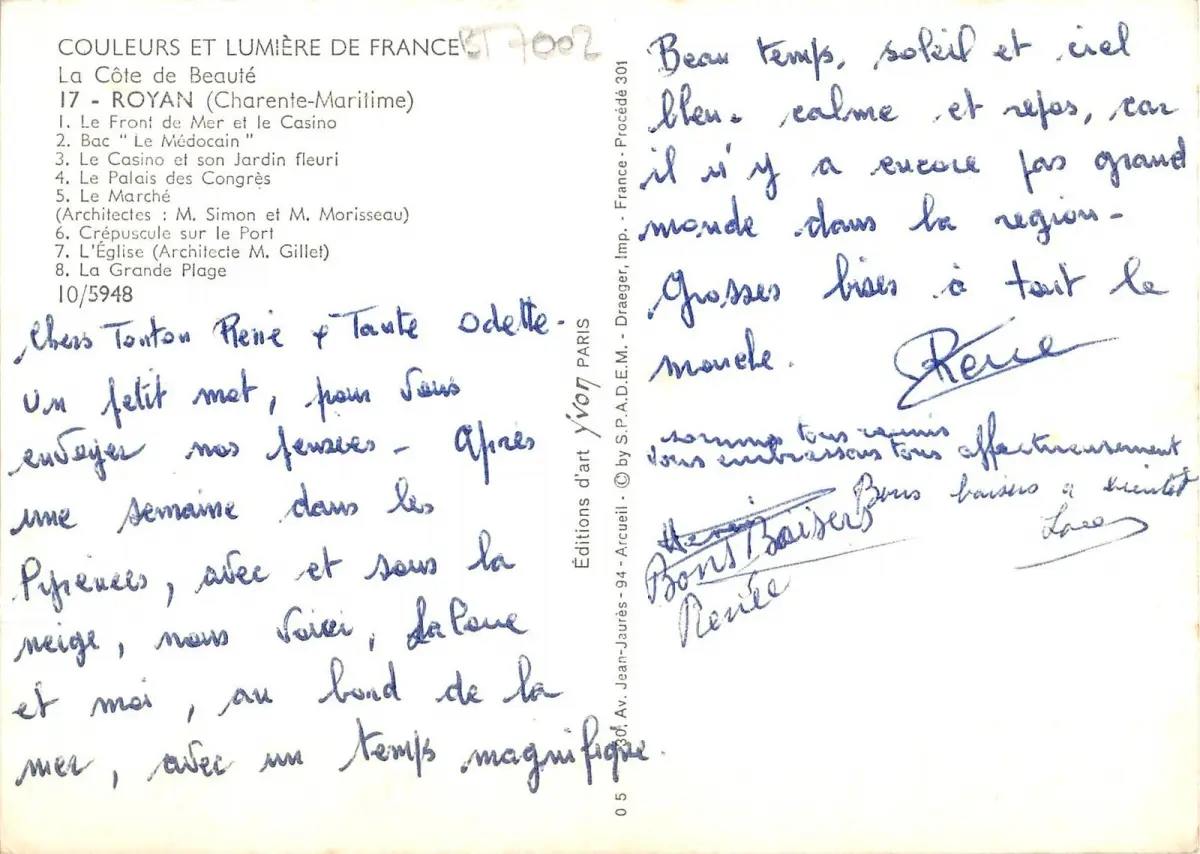 COULEURS ET LUMIÈRE DE FRANCE
BT7002
La Côte de Beauté
17 - ROYAN (Charente-Maritime)
1. Le Front de Mer et le Casino
2. Bac " Le Médocain "
3. Le Casino et son Jardin fleuri
4. Le Palais des Congrès
5. Le Marché
(Architectes : M. Simon et M. Morisseau)
6. Crépuscule sur le Port
7. L'Église (Architecte M. Gillet)
8. La Grande Plage
10/5948
Chers Tonton René & Tante Odette.
Un petit mot, pour vous
envoyer nos pensées - Après
une semaine dans les
Pyrénées, avec et sous la
neige, nous voici,
et moi, au bord de la
mer, avec un temps magnifique.
Éditions d'art yvon PARIS
05 30, Av. Jean-Jaurès - 94 - Arcueil - © by S.P.A.D.E.M. - Draeger, Imp. - France - Procédé 301
Beau temps, soleil et ciel
bleu. calme et repos, car
il n'y a encore pas grand
monde dans la region -
Grosses bises à tout le
monde.
sommes tous reunis
vous embrassons tous affectueusement
Bons baisers a bientot
Bons Baisers
Renée